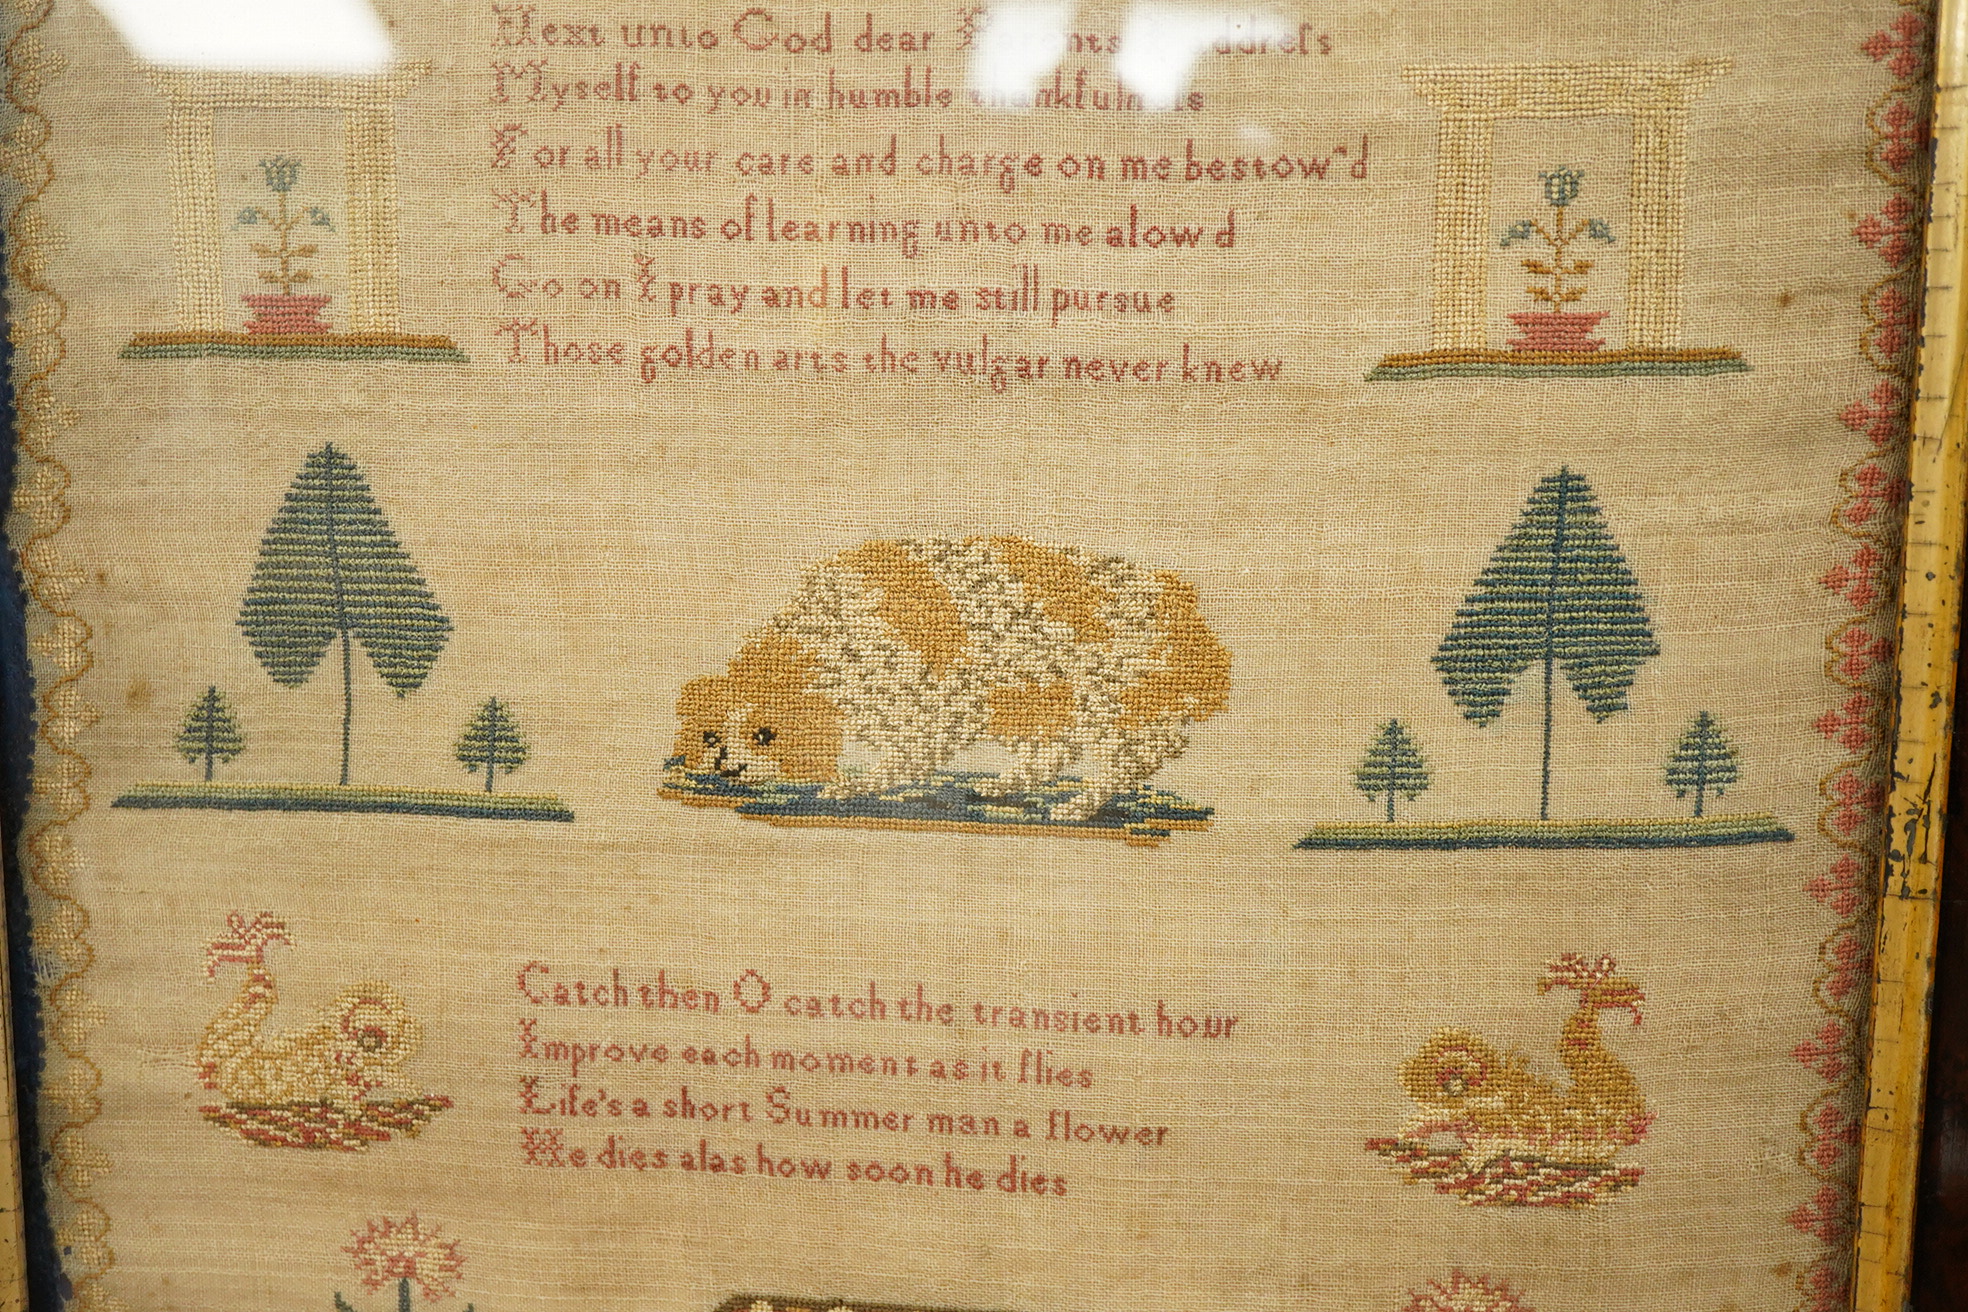 Next unto God dear address
Myself to you in humble thankfulness
For all your care and charge on me bestow"d
The means of learning unto me alow d
Go on I pray and let me still pursue
Those golden arts the vulgar never knew
Catch then O catch the transient hour
Improve each moment as it flies
Life's a short Summer man a flower
He dies alas how soon he dies